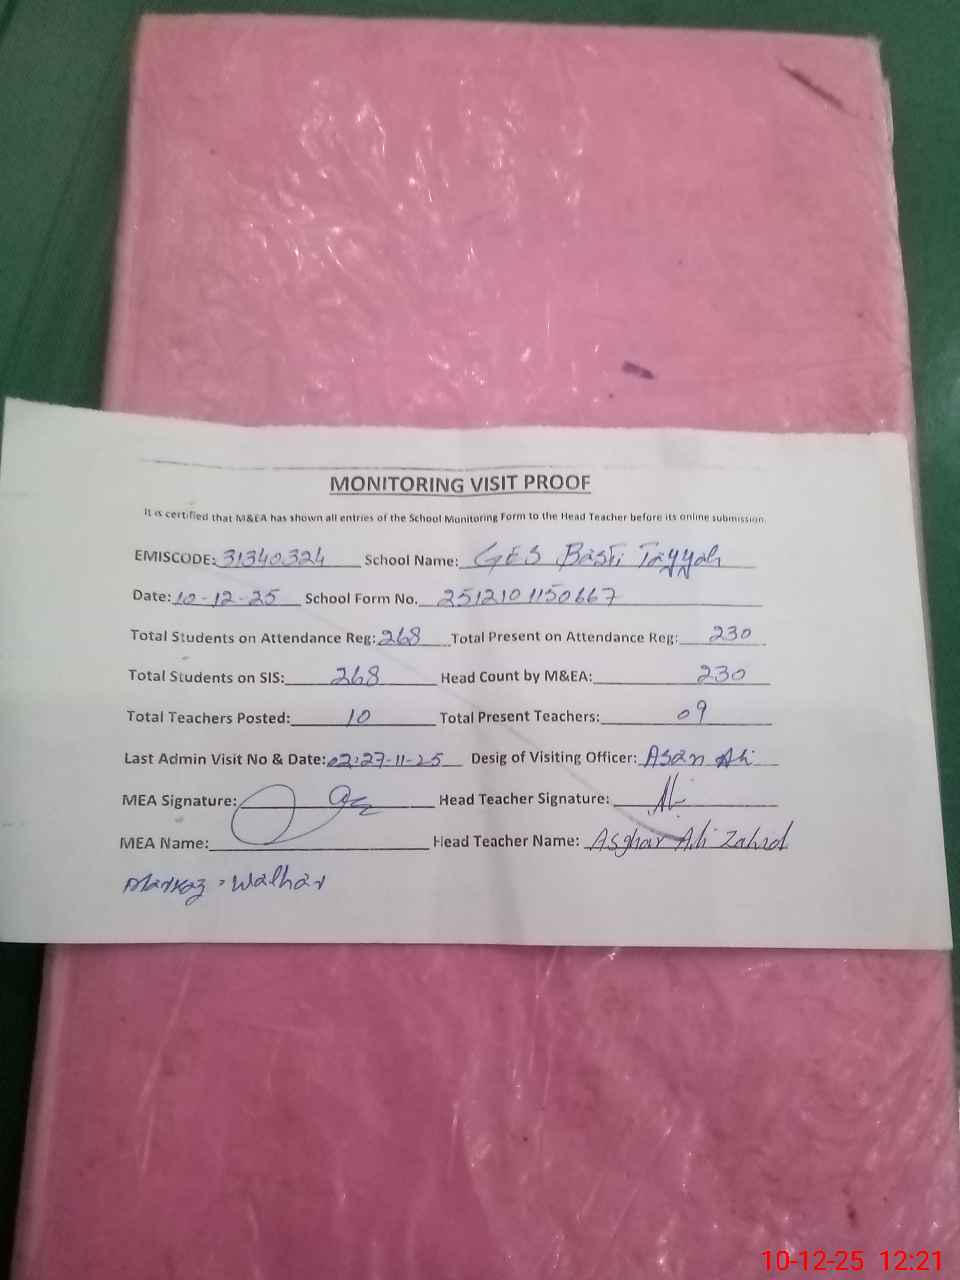 MONITORING VISIT PROOF
It is certified that M&EA has shown all entries of the School Monitoring Form to the Head Teacher before its online submission.
EMISCODE: 31340324 School Name: GES Basti Tayyab
Date: 10-12-25 School Form No. 2512101150667
Total Students on Attendance Reg: 268 Total Present on Attendance Reg: 230
Total Students on SIS: 268 Head Count by M&EA: 230
Total Teachers Posted: 10 Total Present Teachers: 09
Last Admin Visit No & Date: 02:27-11-25 Desig of Visiting Officer: Asan Ali
MEA Signature: Head Teacher Signature:
MEA Name: Head Teacher Name: Asghar Ali Zahid
Markaz: Walhar
10-12-25 12:21